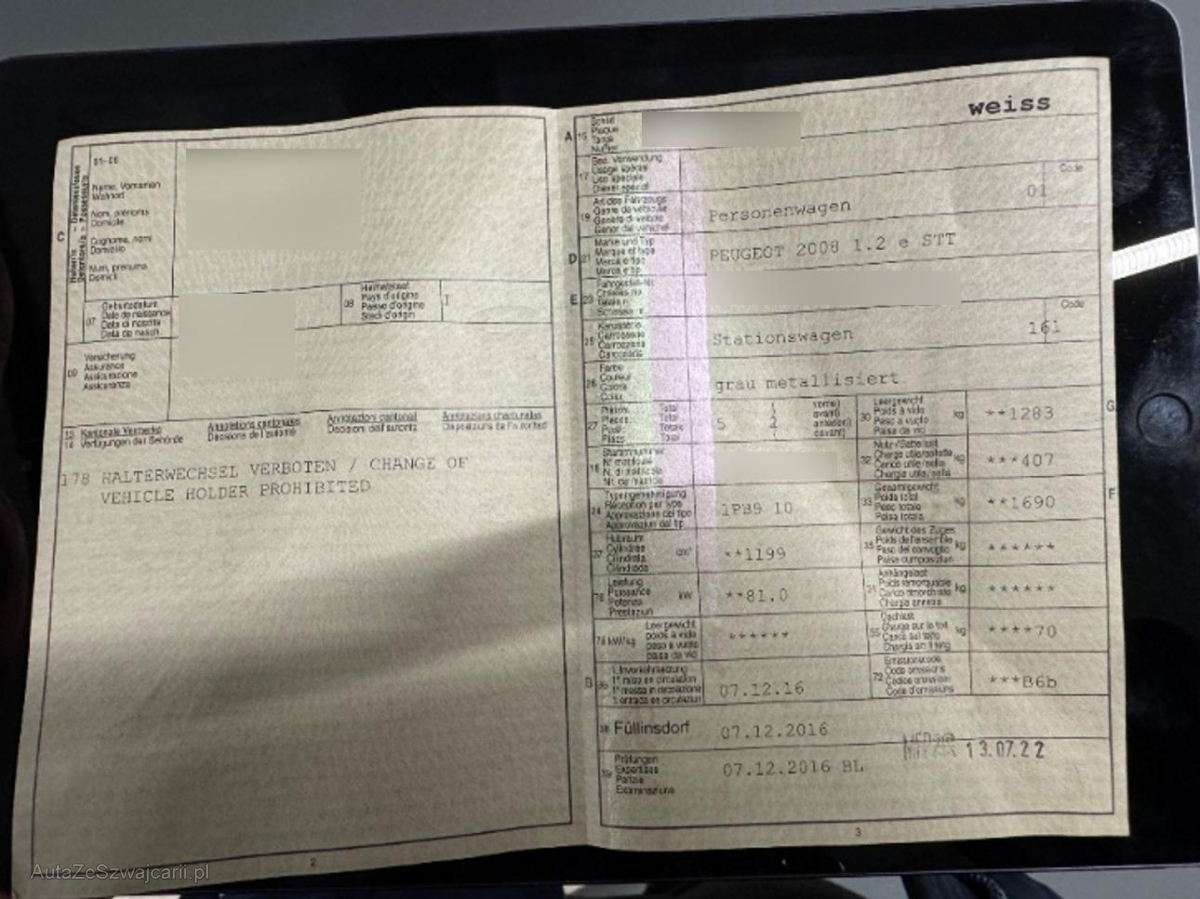 C
Halter/in - Detenteur/trice
01-06
Name, Vornamen
Wohnort
Nom, prénoms
Domicile
Cognome, nomi
Domicilio
Num, prenums
Domicil
07
Geburtsdatum
Date de naissance
Data di nascita
Data da nasch.
08
Heimatstaat
Pays d'origine
Paese d'origine
Stadi d'origin
09
Versicherung
Assurance
Assicurazione
Assicuranza
13 Kantonale Vermerke
14 Verfügungen der Behörde
Annotations cantonales
Décisions de l'autorité
Annotazioni cantonali
Decisioni dell'autorità
Annotaziuns chantunalas
Disposiziuns da l'autoritad
178 HALTERWECHSEL VERBOTEN / CHANGE OF
VEHICLE HOLDER PROHIBITED
2
weiss
A 15
Schild
Plaque
Targa
Numer
17
Bes. Verwendung
Usage spécial
Uso speciale
Diever spezial
Code
19
Art des Fahrzeugs
Genre de véhicule
Genere di veicolo
Gener dal vehichel
Personenwagen
01
D 21
Marke und Typ
Marque et type
Marca e tipo
Marca e tip
PEUGEOT 2008 1.2 e STT
E 23
Fahrgestell-Nr.
Châssis no
Telaio n.
Schassis nr.
25
Karosserie
Carrosserie
Carrozzeria
Carossaria
Stationswagen
Code
161
26
Farbe
Couleur
Colore
Colur
grau metallisiert
27
Plätze
Places
Posti
Plazs
Total
Total
Totale
Total
5
2
vorne)
avant)
anteriori)
davant)
30
Leergewicht
Poids à vide
Peso a vuoto
Paisa da vid
kg
**1283
G
18
Stammnummer
N° matricule
N. di matricola
Nr. da matricla
32
Nutz-/Sattellast
Charge utile/sellette
Carico utile/sella
Chargia utila/sella
kg
***407
24
Typengenehmigung
Réception par type
Approvazione del tipo
Approvaziun dal tip
1PB9 10
33
Gesamtgewicht
Poids total
Peso totale
Paisa totala
kg
**1690
F
37
Hubraum
Cylindrée
Cilindrata
Cilindrada
cm³
**1199
35
Gewicht des Zuges
Poids de l'ensemble
Peso del convoglio
Paisa cumposiziun
kg
******
76
Leistung
Puissance
Potenza
Prestaziun
kW
**81.0
31
Anhängelast
Poids remorquable
Carico rimorchiabile
Chargia annexa
kg
******
78 kW/kg
Leergewicht
poids à vide
peso a vuoto
paisa da vid
******
55
Dachlast
Charge sur le toit
Carico sul tetto
Chargia sin il tetg
kg
****70
B 36
1. Inverkehrsetzung
1re mise en circulation
1a messa in circolazione
1. entrada en circulaziun
07.12.16
72
Emissionscode
Code émissions
Codice emissioni
Code d'emissiuns
***B6b
38 Füllinsdorf
07.12.2016
39
Prüfungen
Expertises
Perizie
Examinaziuns
07.12.2016 BL
13.07.22
3
AutaZeSzwajcarii.pl